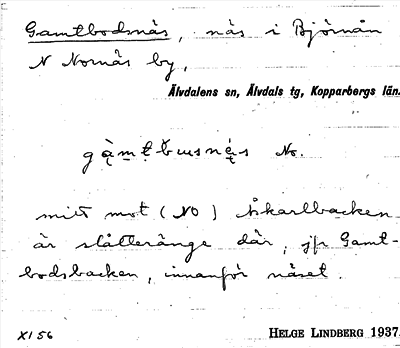 Gamtbodsnäs, näs i Björnån
N Nornäs by,
Älvdalens sn, Älvdals tg, Kopparbergs län.
No.
mitt mot (NO) Åkarlbacken
är slåtteränge där, jfr Gamt-
bodsbacken, innanför näset.
XI 56 HELGE LINDBERG 1937.